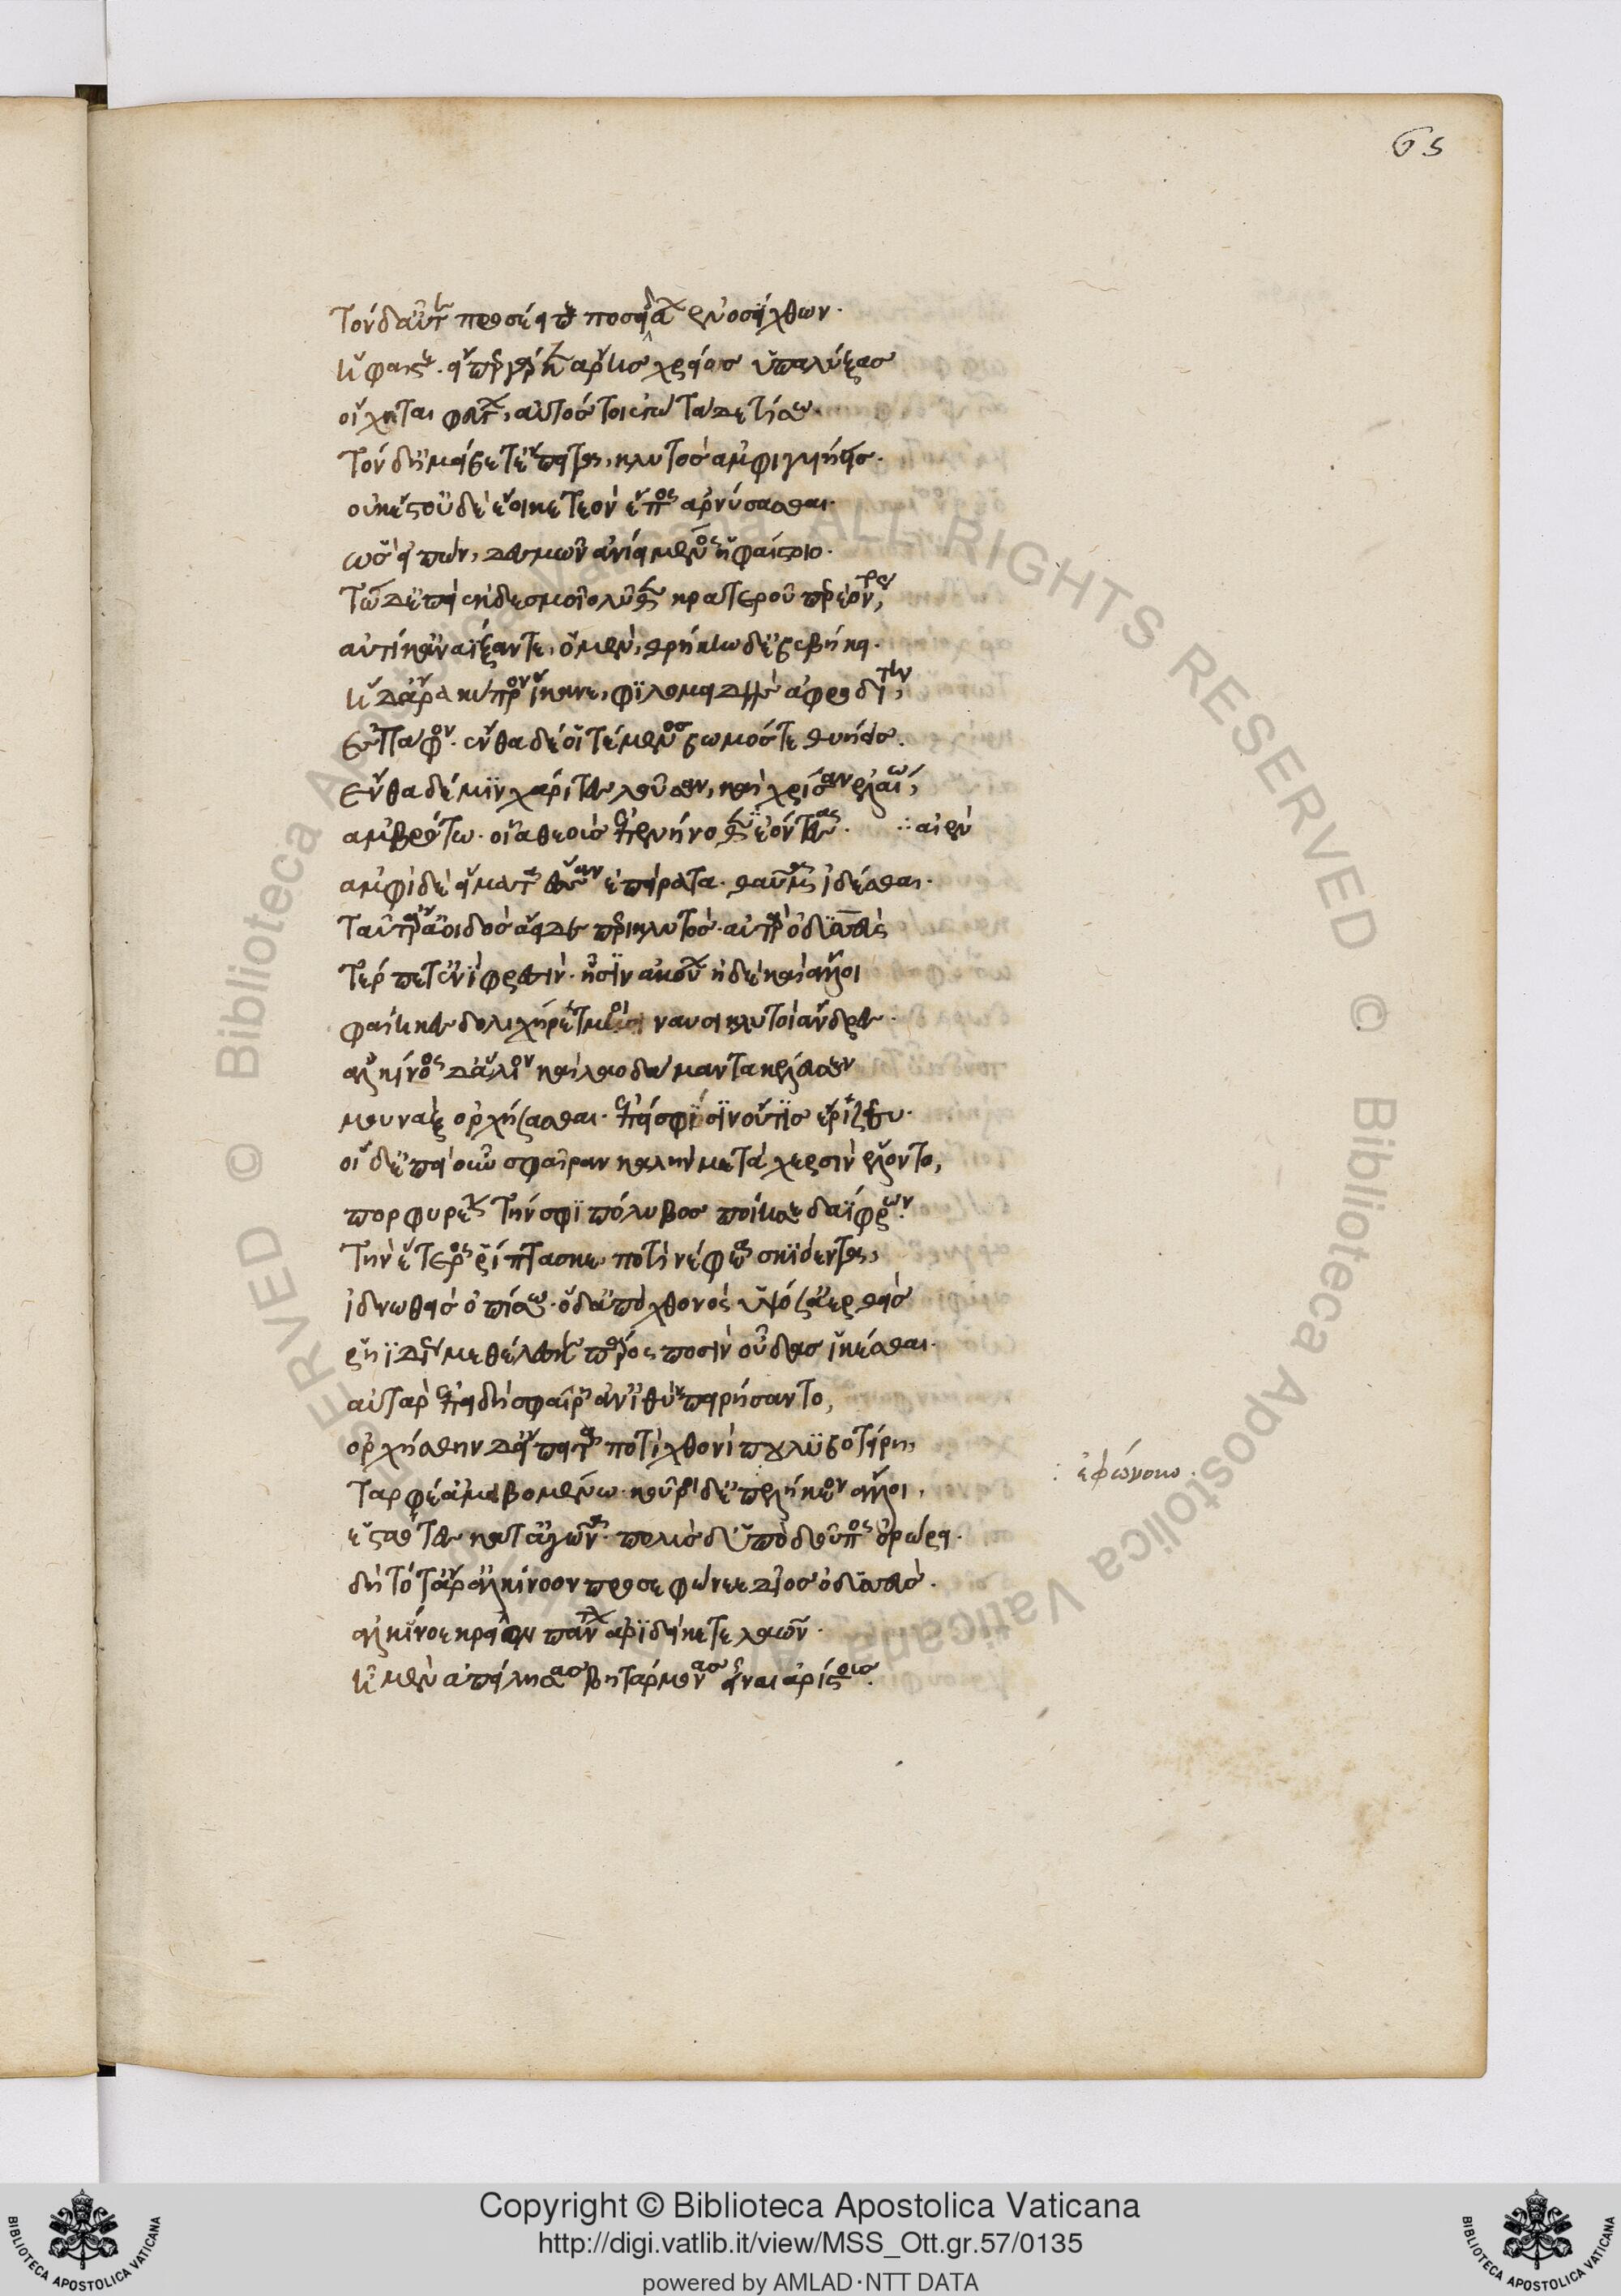 Τὸν δ' αὖτε προσέειπε ποσειδάων ἐνοσίχθων·
ἥφαιστ'· εἴπερ γάρ κεν ἄρης χρεῖος ὑπαλύξας
οἴχηται φεύγων, αὐτός τοι ἐγὼ τάδε τίσω·
Τὸν δ' ἠμείβετ' ἔπειτα, κλυτὸς ἀμφιγυήεις·
οὐκ ἔστ' οὐδὲ ἔοικε τεὸν ἔπος ἀρνήσασθαι·
ὣς εἰπὼν, δεσμῶν ἀνίει μένος ἡφαίστοιο·
Τὼ δ' ἐπεὶ ἐκ δεσμοῖο λύθεν κρατεροῦ περ ἐόντος,
αὐτίκ' ἀναΐξαντε, ὁ μὲν, θρήκην δὲ βεβήκει·
ἡ δ' ἄρα κύπρον ἵκανε, φιλομειδὴς ἀφροδίτη,
ἐς Πάφον· ἔνθα δέ οἱ τέμενος βωμός τε θυήεις·
Ἔνθα δέ μιν χάριτες λοῦσαν, καὶ χρῖσαν ἐλαίω,
ἀμβρότω· οἷα θεοὺς ἐπενήνοθεν ἐόντας· ∴ αἰὲν
ἀμφὶ δὲ εἵματα ἕσσαν ἐπήρατα· θαῦμα ἰδέσθαι·
Ταῦτ' ἄρ' ἀοιδὸς ἄειδε περικλυτός· αὐτὰρ ὀδυσσεὺς
τέρπετ' ἐνὶ φρεσὶν· ᾗσιν ἀκούων ἠδὲ καὶ ἄλλοι
φαίηκες δολιχήρετμοι ναυσικλυτοὶ ἄνδρες·
ἀλκίνοος δ' ἅλιον καὶ λαοδάμαντα κέλευσεν
μουνὰξ ὀρχήσασθαι· ἐπεί σφισιν οὔτις ἔριζεν·
οἱ δ' ἐπεὶ οὖν σφαῖραν καλὴν μετὰ χερσὶν ἕλοντο,
πορφυρέην τήν σφι πόλυβος ποίησε δαΐφρων·
Τὴν ἕτερος ῥίπτασκε ποτὶ νέφεα σκιόεντα,
ἰδνωθεὶς ὀπίσω· ὁ δ' ἀπὸ χθονὸς ὑψόσ' ἀερθεὶς
ῥηϊδίως μεθέλεσκε πάρος ποσὶν οὖδας ἱκέσθαι·
αὐτὰρ ἐπειδὴ σφαίρη ἀν' ἰθὺν πειρήσαντο,
ὀρχήσθην δ' ἤπειτα ποτὶ χθονὶ πουλυβοτείρη,
Ταρφέ' ἀμειβομένω· κοῦροι δ' ἐπελήκεον ἄλλοι, : ἐφώνουν·
ἑσταότες κατ' ἀγῶνα· πολὺς δ' ὑπὸ δοῦπος ὀρώρει·
δὴ τότ' ἄρ' ἀλκίνοον προσεφώνεε δῖος ὀδυσσεύς·
ἀλκίνοε κρεῖον πάντων ἀριδείκετε λαῶν·
ἠμὲν ἀπείλησας βητάρμονας εἶναι ἀρίστους·
65
Copyright © Biblioteca Apostolica Vaticana
http://digi.vatlib.it/view/MSS_Ott.gr.57/0135
powered by AMLAD·NTT DATA
BIBLIOTECA APOSTOLICA VATICANA
BIBLIOTECA APOSTOLICA VATICANA
© Biblioteca Apostolica Vaticana ALL RIGHTS RESERVED © Biblioteca Apostolica Vaticana ALL RIGHTS RESERVED